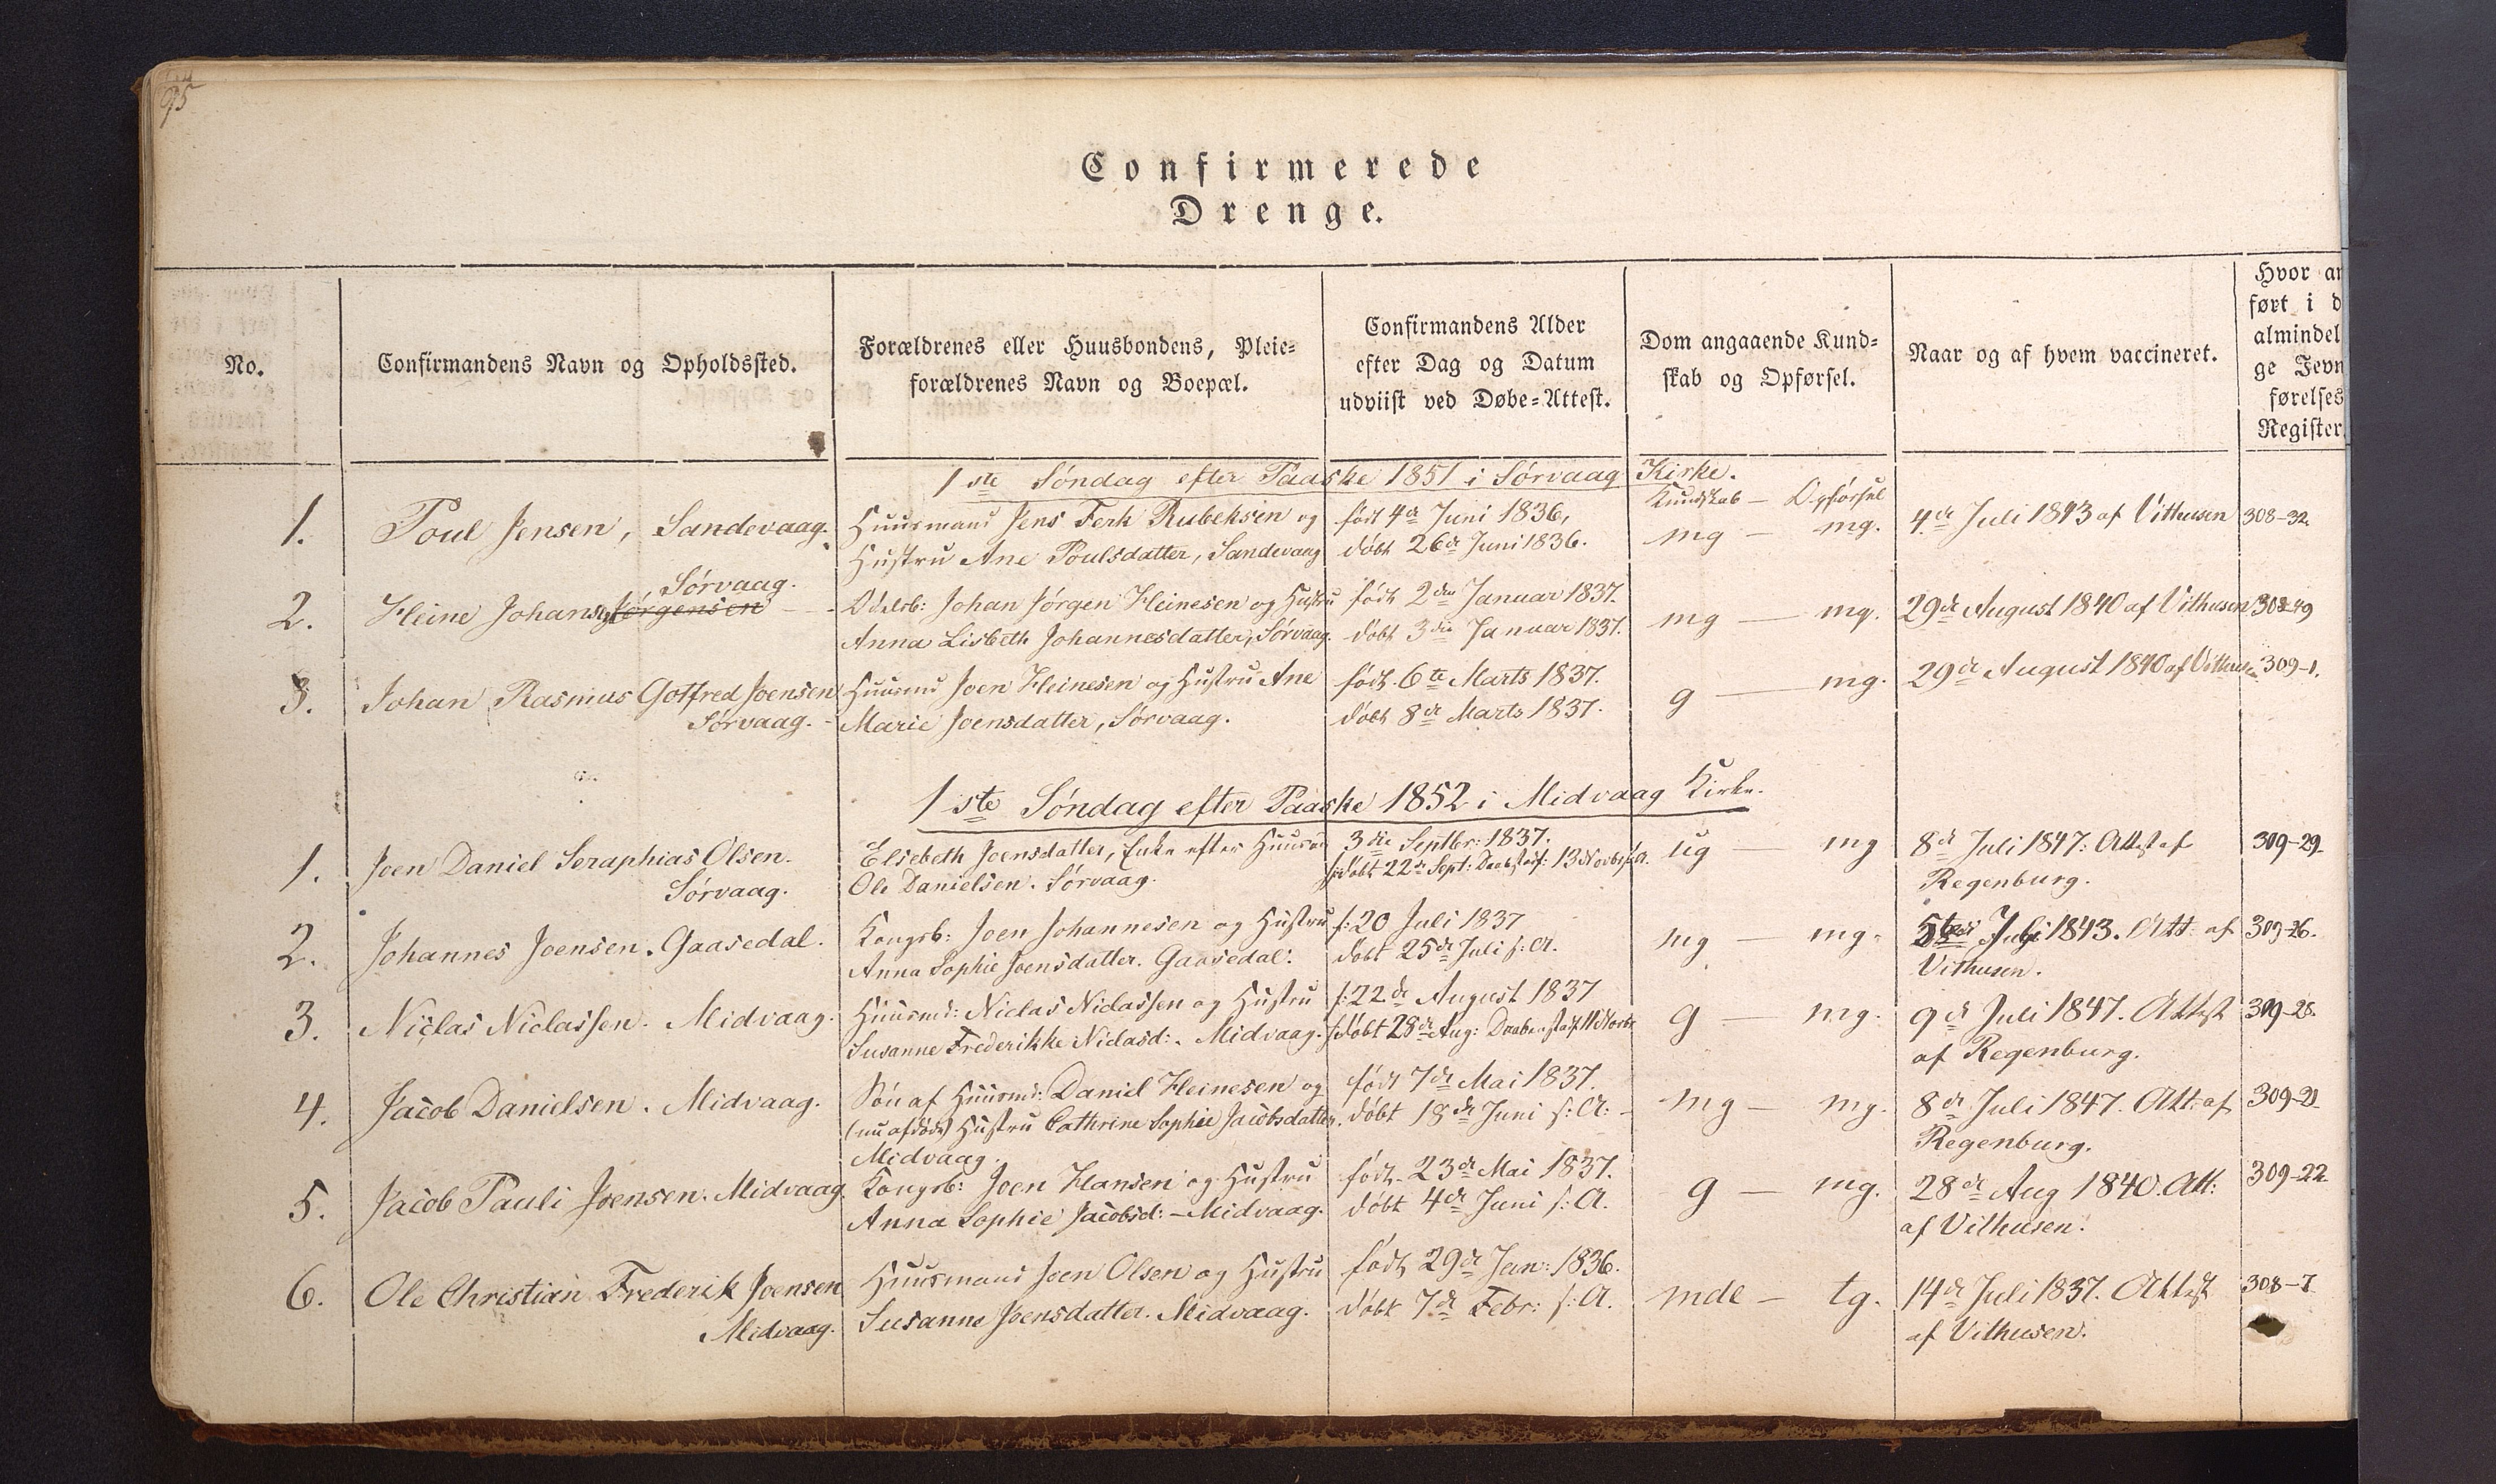 95
Confirmerede
Drenge.
No.
Confirmandens Navn og Opholdssted.
Forældrenes eller Huusbondens, Pleie-
forældrenes Navn og Boepæl.
Confirmandens Alder
efter Dag og Datum
udviist ved Døbe-Attest.
Dom angaaende Kund-
skab og Opførsel.
Naar og af hvem vaccineret.
Hvor an
ført i d
almindel
ge Jevn
førelses
Register.
1ste Søndag efter Paaske 1851 i Sørvaag Kirke.
Kundskab — Opførsel
1.
Poul Jensen, Sandevaag.
Huusmand Jens Ferk Rubeksen og
Hustru Ane Poulsdatter, Sandevaag
født 4de Juni 1836,
døbt 26de Juni 1836.
mg — mg.
4de Juli 1843 af Vithusen
308-32.
2.
Sørvaag.
Heine Johansen Jørgensen
Odelsb: Johan Jørgen Heinesen og Hustru
Anna Lisbeth Johannesdatter, Sørvaag.
født 2den Januar 1837.
døbt 3die Januar 1837.
mg — mg.
29de August 1840 af Vithusen
308-49
3.
Johan Rasmus Gotfred Joensen
Sørvaag.
Huusmd Joen Heinesen og Hustru Ane
Marie Joensdatter, Sørvaag.
født 6te Marts 1837.
døbt 8de Marts 1837.
g — mg.
29de August 1840 af Vithusen
309-1.
1ste Søndag efter Paaske 1852 i Midvaag Kirke.
1.
Joen Daniel Seraphias Olsen.
Sørvaag.
Elsebeth Joensdatter, Enke efter Huusmd
Ole Danielsen. Sørvaag.
3die Septbr: 1837.
hjdøbt 22de Sept: Daabstadf: 13 Novbr s: A.
ug — mg
8de Juli 1847: Attest af
Regenburg.
309-29.
2.
Johannes Joensen. Gaasedal.
Kongsb: Joen Johannesen og Hustru
Anna Sophie Joensdatter. Gaasedal.
f: 20 Juli 1837
døbt 25de Juli s: A.
mg — mg.
5te Juli 1843. Att: af
Vithusen.
309-26.
3.
Niclas Niclassen. Midvaag.
Huusmd: Niclas Niclassen og Hustru
Susanne Frederikke Niclasd:. Midvaag.
f: 22de August 1837
hjdøbt 28de Aug: Daaben stadf. 11 Novbr
g — mg.
9de Juli 1847. Attest
af Regenburg.
309-28.
4.
Jacob Danielsen. Midvaag.
Søn af Huusmd: Daniel Heinesen og
(nu afdøde) Hustru Cathrine Sophie Jacobsdatter.
Midvaag.
født 7de Mai 1837.
døbt 18de Juni s: A:
mg — mg.
8de Juli 1847. Att: af
Regenburg.
309-21.
5.
Jacob Pauli Joensen. Midvaag.
Kongsb: Joen Hansen og Hustru
Anna Sophie Jacobsd: — Midvaag.
født 23de Mai 1837.
døbt 4de Juni s: A.
g — mg.
28de Aug 1840. Att:
af Vithusen.
309-22.
6.
Ole Christian Frederik Joensen
Midvaag.
Huusmand Joen Olsen og Hustru
Susanne Joensdatter. Midvaag.
født 29de Jan: 1836.
døbt 7de Febr: s: A.
mdl — tg.
14de Juli 1837. Attest
af Vithusen.
308-7